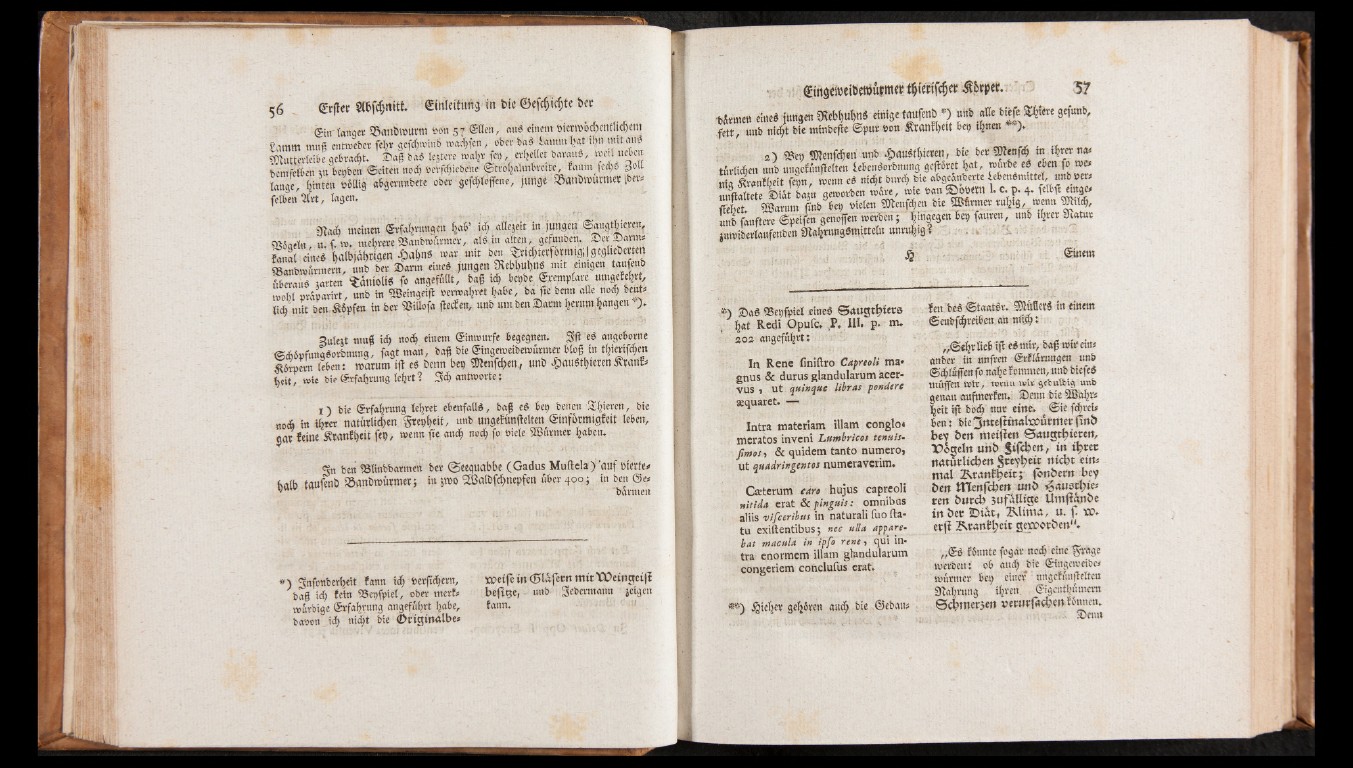 56 Erster Abschnitt. Einleitung in die Geschichte der
Ein langer Bandwurm von 57 Ellen, aus einem vierwöchentlichem
Lamm muß entweder sehr geschwind wachsen, oder das Lamm hat ihn mit aus
Mutterleibe gebracht. Daß das leztere wahr sey, erhellet daraus, weil neben
demselben zu beyden Seiten noch verschiedene Strohalmbreite, kaum sechs Zoll
lange, hinten völlig abgerundete oder geschlossene, junge Bandwürmer der-
selben Art, lagen.
Nach meinen Erfahrungen hab' ich allezeit in jungen Saugthieren,
Vögeln, u. s. w. mehrere Bandwürmer, als in alten, gefunden. Der Darm-
kanal eines halbjährigen Hahns war mit den Trichterförmig gegliederten
Bandwürmern, und der Darm eines jungen Rebhuhns mit einigen tausend
überaus zarten Täniolis so angefüllt, daß ich beyde Exemplare umgekehrt,
wohl präparirt, und in Weingeist verwahret habe, da sie denn alle noch deut-
lich mit den Köpfen in der Villosa stecken, und um den Darm herum hangen *).
Zulezt muß ich noch einem Einwurfe begegnen. Ist es angeborne
Schöpfungsordnung, sagt man, daß die Eingeweidewürmer bloß in thierischen
Körpern leben: warum ist es denn bey Menschen, und Hausthieren Krank-
heit, wie die Erfahrung lehrt? Ich antworte:
1) die Erfahrung lehret ebenfalls, daß es bey denen Thieren, die
noch in ihrer natürlichen Freyheit, und ungekünstelten Einförmigkeit leben,
gar keine Krankheit sey, wenn sie auch noch so viele Würmer haben.
In den Blinddarmen der Seequabbe (Gadus Mustela) auf vierte-
halb tausend Bandwürmer; in zwo Waldschnepfen über 400; in den Ge-
därmen
*) Insonderheit kann ich versichern,
daß ich kein Beyspiel, oder merk-
würdige Erfahrung angeführt habe,
davon ich nicht die Originalbe-
weise in Gläsern mit Weingeist
besitze, und Jedermann zeigen
kann.
Eingeweidewürmer thierischer Körper. 57
därmen eines jungen Rebhuhns einige tausend *) und alle diese Thiere gesund,
fett, und nicht die mindeste Spur von Krankheit bey ihnen **).
2) Bey Menschen und Hausthieren, die der Mensch in ihrer na-
türlichen und ungekünstelten Lebensordnung gestöret hat, würde es eben so we-
nig Krankheit seyn, wenn es nicht durch die abgeänderte Lebensmittel, und ver-
unstaltete Diät dazu geworden wäre, wie van Dövern l. c. p. 4. selbst einge-
stehet. Warum sind bey vielen Menschen die Würmer ruhig, wenn Milch,
und sanftere Speisen genossen werden; hingegen bey sauren, und ihrer Natur
zuwiderlaufenden Nahrungsmitteln unruhig?
H Einem
*) Das Beyspiel eines Saugthiers
hat Redi Opusc. P. III. p. m.
202 angeführt:
In Rene sinistro Capreoli ma-
gnus & durus glandularum acer-
vus, ut quinque libras pondere
æquaret. —
Intra materiam illam conglo-
meratos inveni Lumbricos tenuis-
simos, & quidem tanto numero,
ut quadringentos numeraverim.
Cæterum caro hujus capreoli
nitida erat & pinguis: omnibus
aliis visceribus in naturali suo sta-
tu existentibus; nec ulla appare-
bat macula in ipso rene, qui in-
tra enormem illam glandularum
congeriem conclusus erat.
**) Hieher gehören auch die Gedan-
ken des Staatsr. Müllers in einem
Sendschreiben an mich:
„Sehr lieb ist es mir, daß wir ein-
ander in unsren Erklärungen und
Schlüssen so nahe kommen, und dieses
müssen wir, wenn wir geduldig und
genau aufmerken. Denn die Wahr-
heit ist doch nur eine. Sie schrei-
ben: die Intestinalwürmer sind
bey den meisten Saugthieren,
Vögeln und Fischen, in ihrer
natürlichen Freyheit nicht ein-
mal Krankheit; sondern bey
den Menschen und Hausthie-
ren durch zufällige Umstände
in der Diät, Klima, u. s. w.
erst Krankheit geworden“.
„Es könnte sogar noch eine Frage
werden: ob auch die Eingeweide-
würmer bey einer ungekünstelten
Nahrung ihren Eigenthümern
Schmerzen verursachen können.
Denn